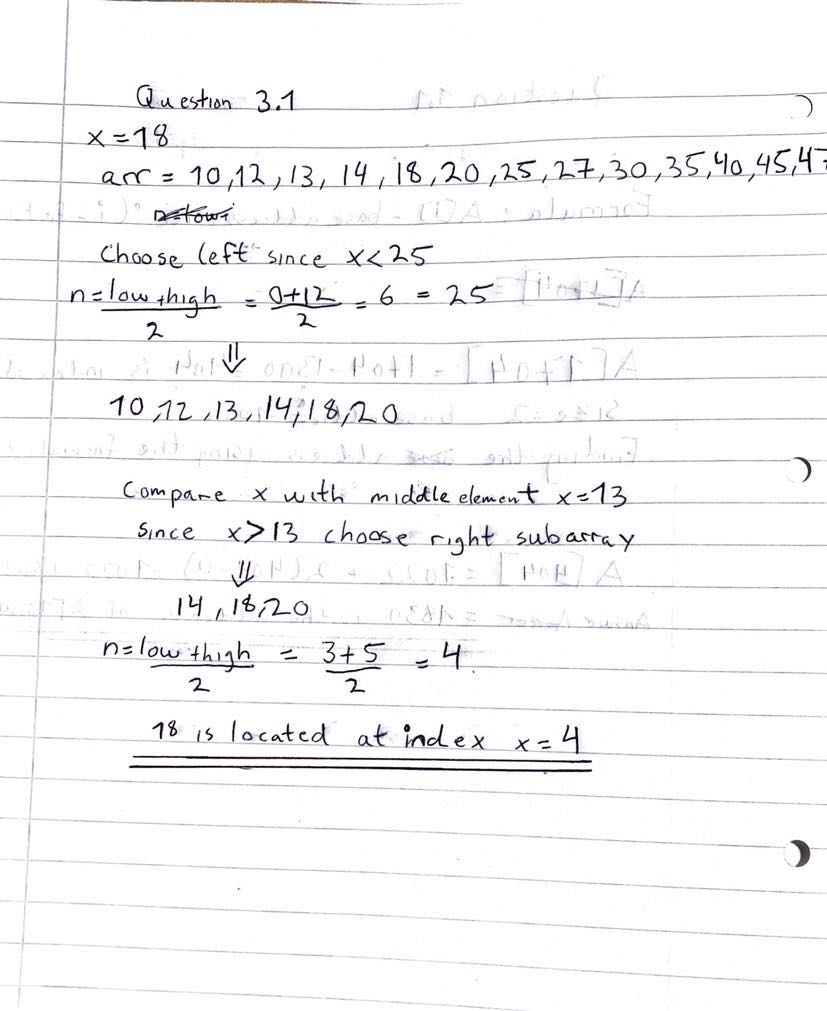 Question 3.1
x = 18
arr = 10, 12, 13, 14, 18, 20, 25, 27, 30, 35, 40, 45, 47
Choose left since x < 25
n = low + high / 2 = 0+12 / 2 = 6 = 25
⇓
10, 12, 13, 14, 18, 20
Compare x with middle element x = 13
since x > 13 choose right subarray
⇓
14, 18, 20
n = low + high / 2 = 3+5 / 2 = 4
18 is located at index x = 4